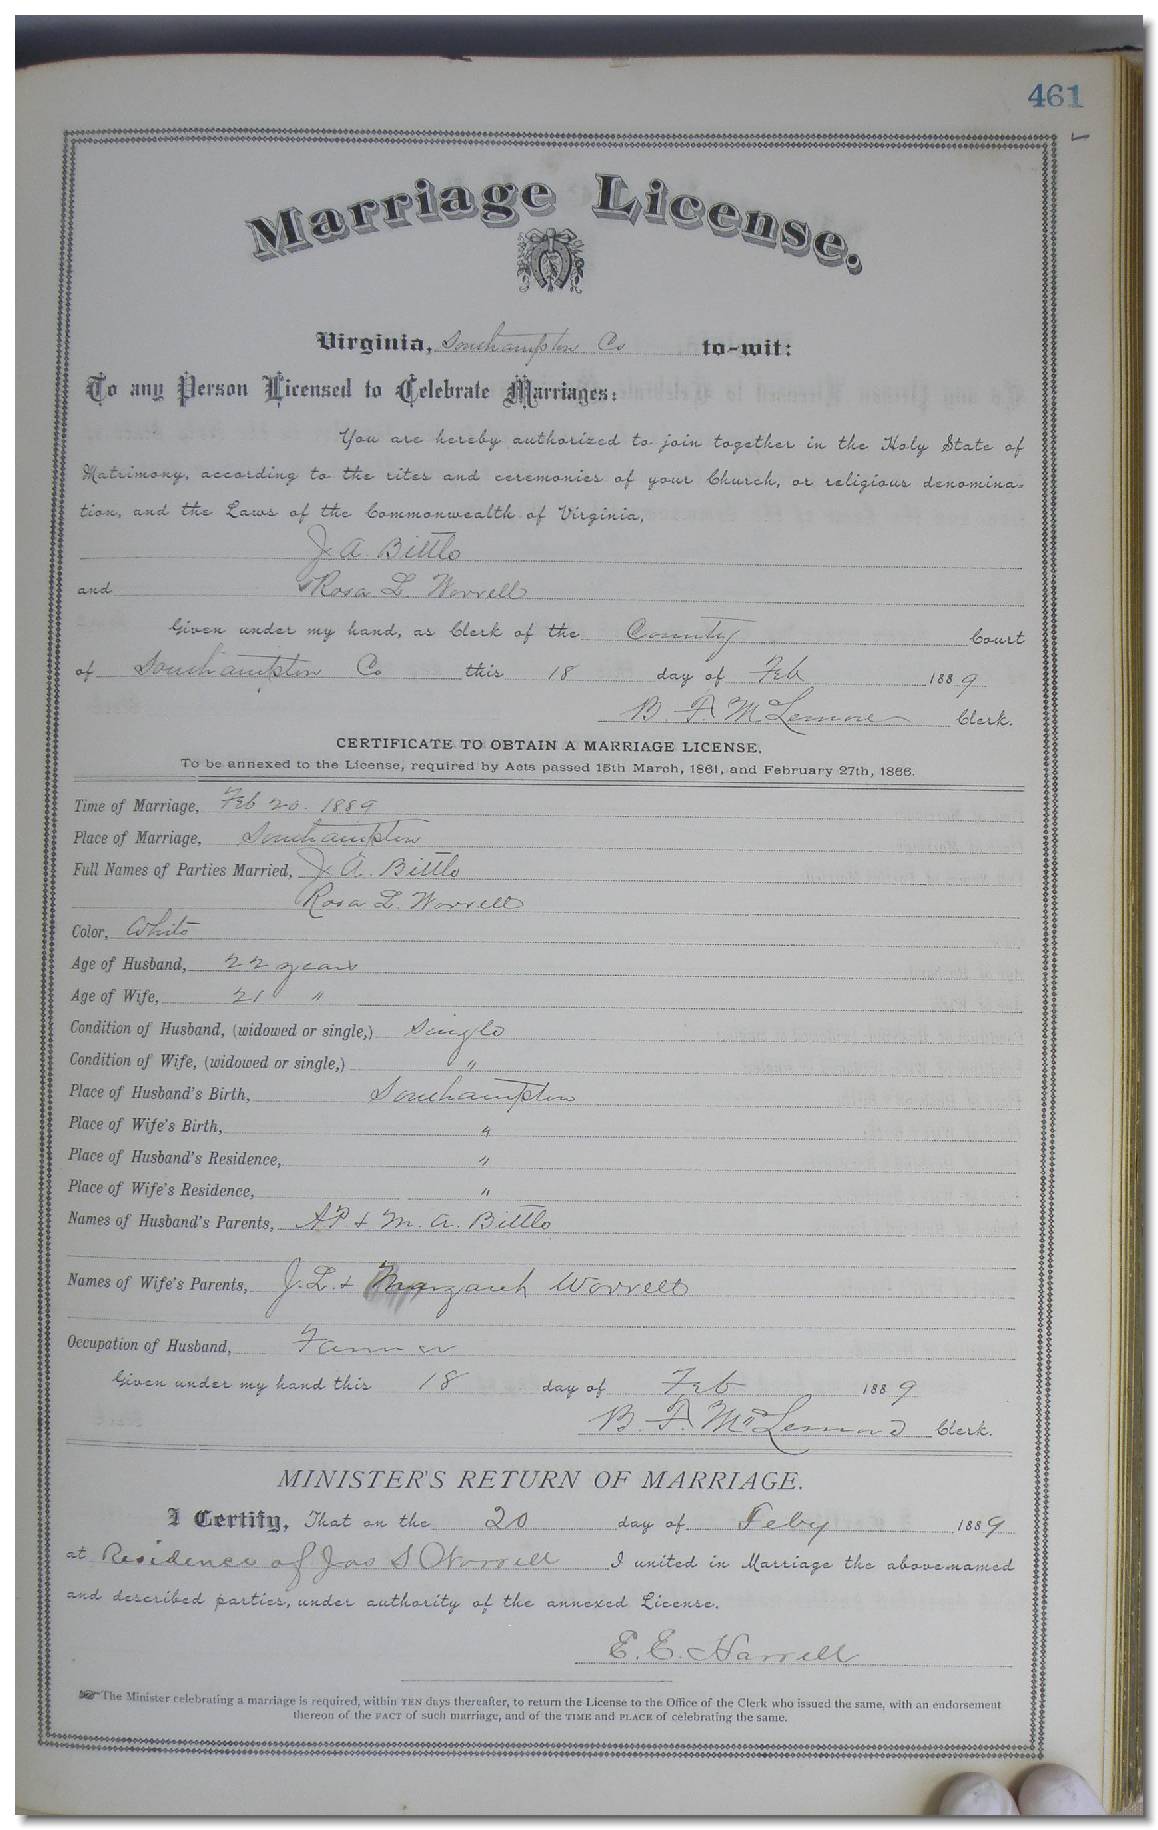 461
Marriage License.
Virginia, Southampton Co to-wit:
To any Person Licensed to Celebrate Marriages:
You are hereby authorized to join together in the Holy State of
Matrimony, according to the rites and ceremonies of your Church, or religious denomina-
tion, and the Laws of the Commonwealth of Virginia,
J. A. Bittle
and Rosa L. Worrell
Given under my hand, as Clerk of the County Court
of Southampton Co this 18 day of Feb 1889
B. F. McLemore Clerk.
CERTIFICATE TO OBTAIN A MARRIAGE LICENSE,
To be annexed to the License, required by Acts passed 15th March, 1861, and February 27th, 1866.
Time of Marriage, Feb 20. 1889
Place of Marriage, Southampton
Full Names of Parties Married, J. A. Bittle
Rosa L. Worrell
Color, White
Age of Husband, 22 years
Age of Wife, 21 "
Condition of Husband, (widowed or single,) Single
Condition of Wife, (widowed or single,) "
Place of Husband's Birth, Southampton
Place of Wife's Birth, "
Place of Husband's Residence, "
Place of Wife's Residence, "
Names of Husband's Parents, AP & M. A. Bittle
Names of Wife's Parents, J. L. & Margaret Worrell
Occupation of Husband, Farmer
Given under my hand this 18 day of Feb 1889
B. F. McLemore Clerk.
MINISTER'S RETURN OF MARRIAGE.
I Certify, That on the 20 day of Feby 1889
at Residence of Jas S Worrell I united in Marriage the above-named
and described parties, under authority of the annexed License.
E. E. Harrell
The Minister celebrating a marriage is required, within TEN days thereafter, to return the License to the Office of the Clerk who issued the same, with an endorsement
thereon of the FACT of such marriage, and of the TIME and PLACE of celebrating the same.